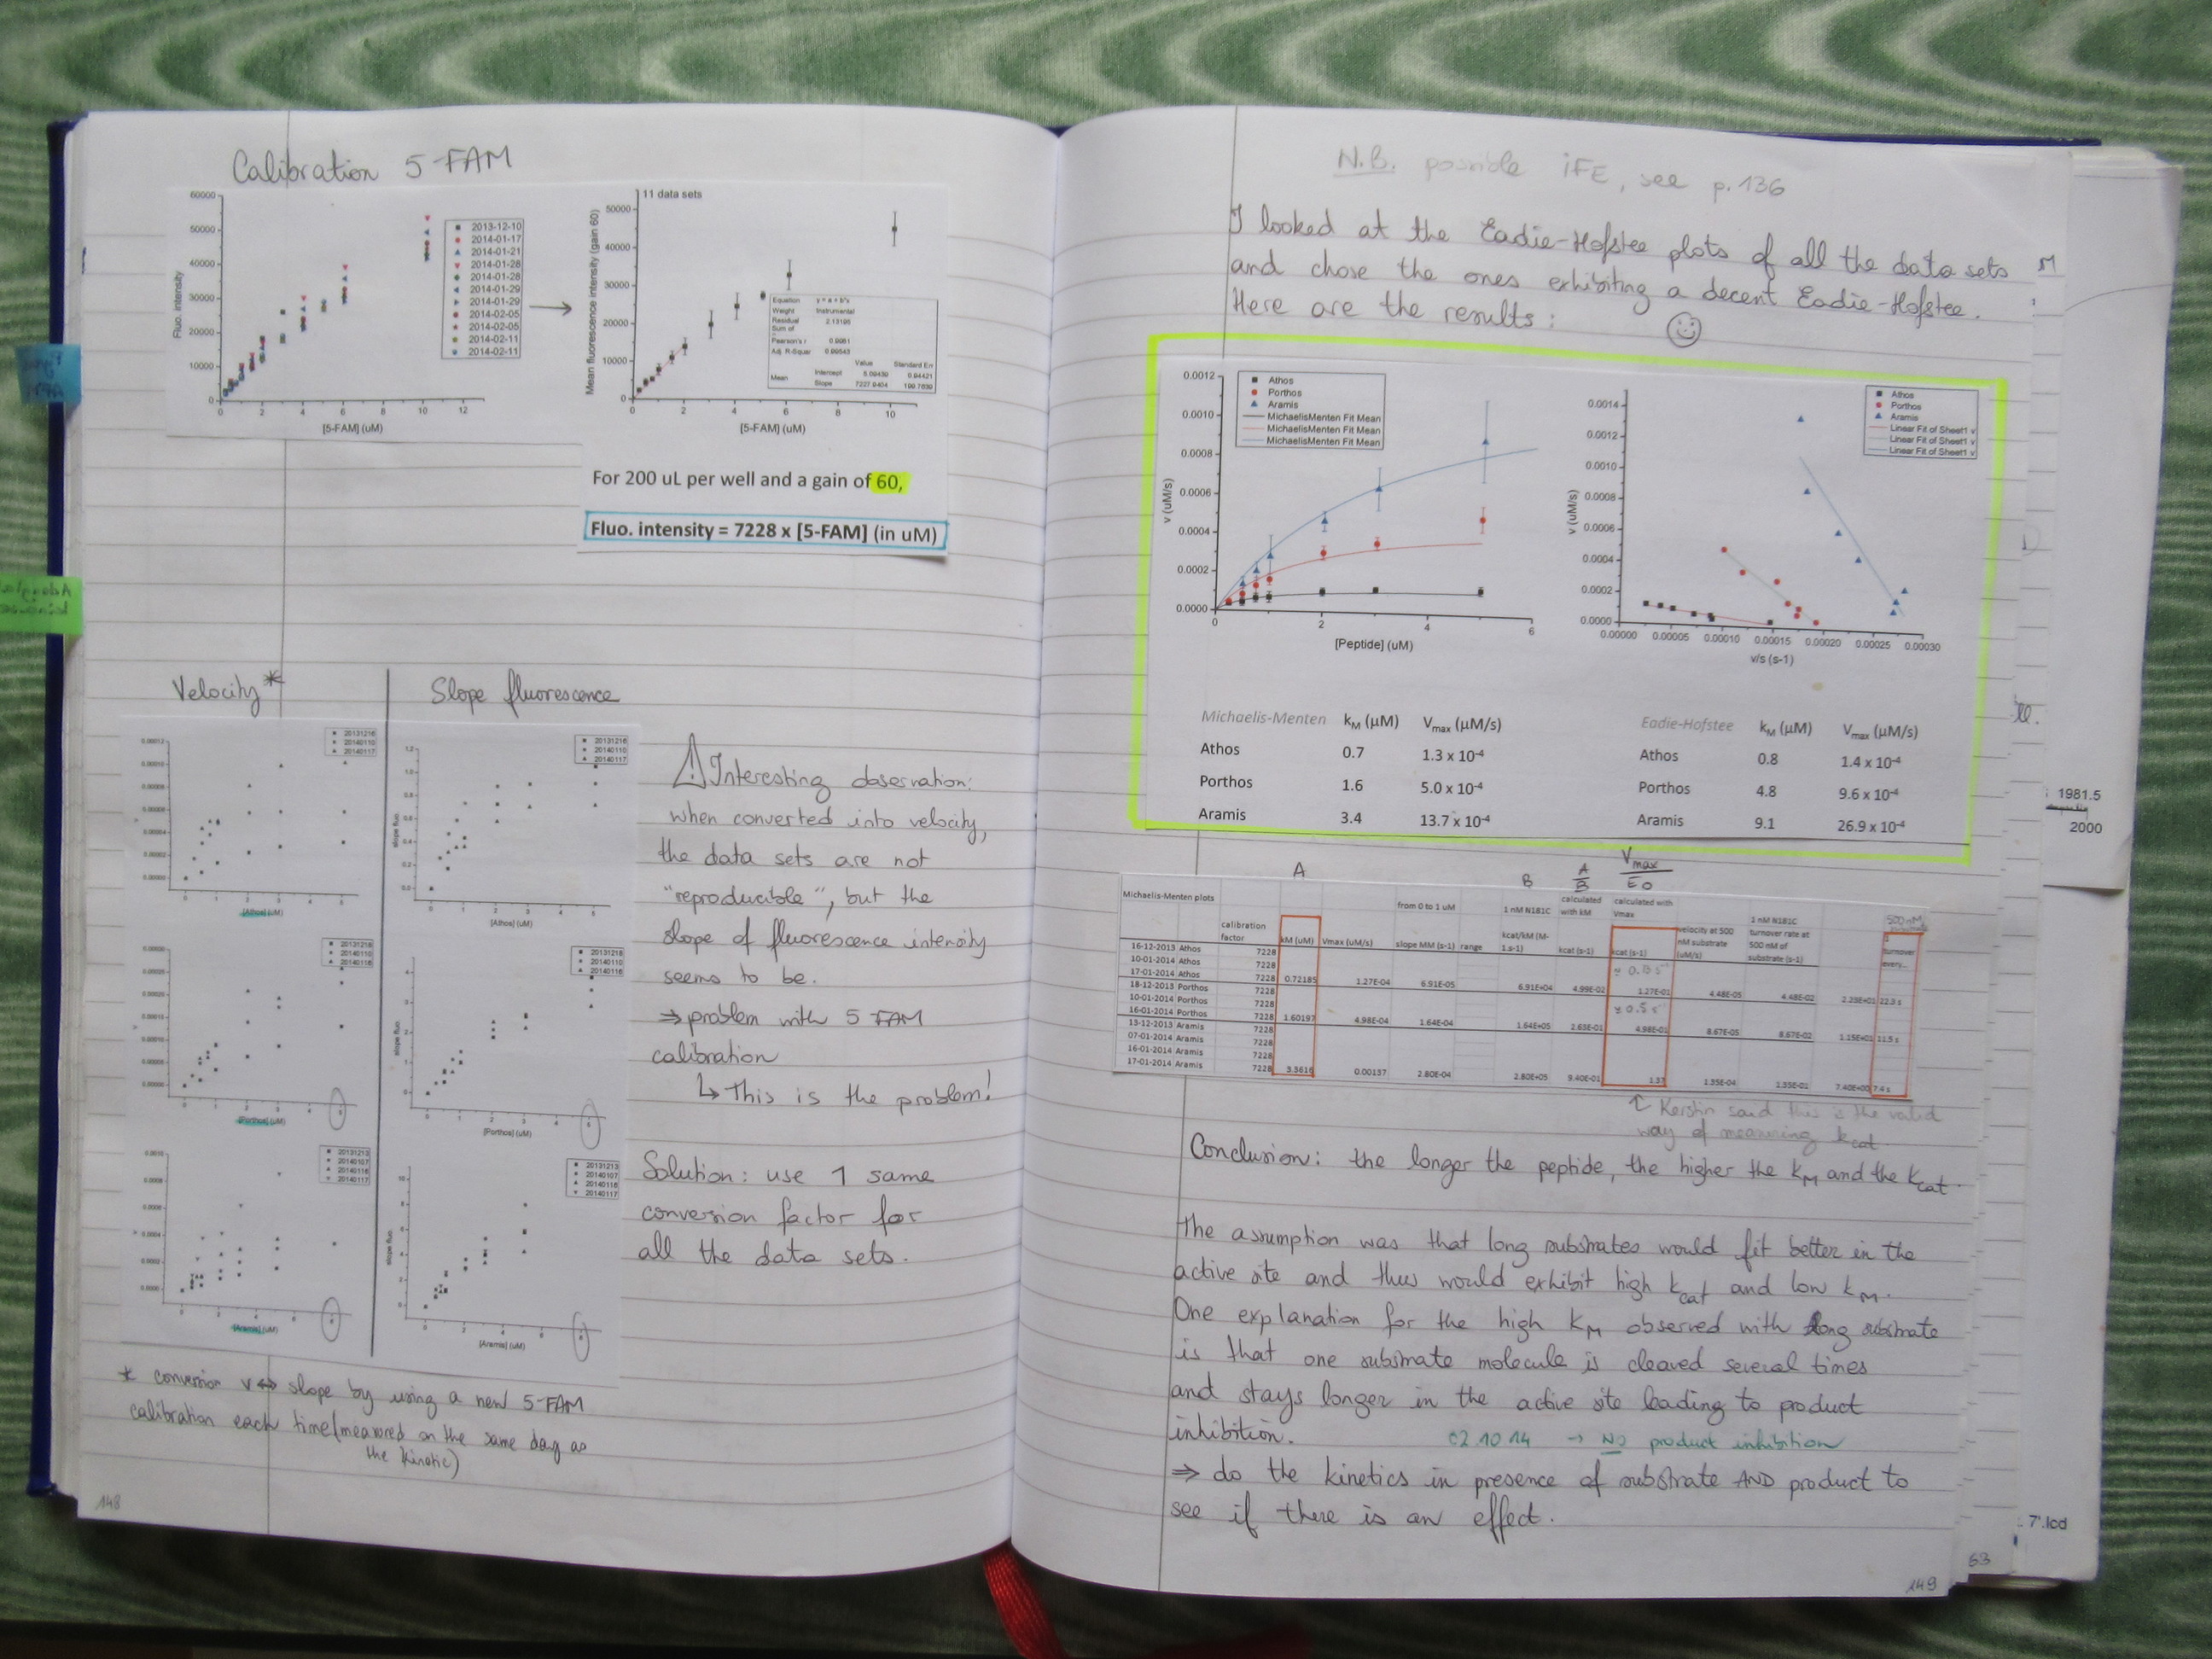 Calibration 5-FAM
60000
50000
40000
30000
20000
10000
0
Fluo. intensity
0 2 4 6 8 10 12
[5-FAM] (uM)
2013-12-10
2014-01-17
2014-01-21
2014-01-28
2014-01-28
2014-01-29
2014-01-29
2014-02-05
2014-02-05
2014-02-11
2014-02-11
11 data sets
50000
40000
30000
20000
10000
0
Mean fluorescence intensity (gain 60)
0 2 4 6 8 10
[5-FAM] (uM)
Equation y = a + b*x
Weight Instrumental
Residual Sum of
Pearson's r
Adj. R-Squar
Value Standard Err
Mean Intercept
Slope
For 200 uL per well and a gain of 60,
Fluo. intensity = 7228 x [5-FAM] (in uM)
Velocity*
Slope fluorescence
20131216
20140110
20140117
[Athos] (uM)
20131216
20140110
20140117
slope fluo
[Athos] (uM)
20131218
20140110
20140116
[Porthos] (uM)
20131218
20140110
20140116
slope fluo
[Porthos] (uM)
20131213
20140107
20140116
20140117
[Aramis] (uM)
20131213
20140107
20140116
20140117
slope fluo
[Aramis] (uM)
Interesting observation:
when converted into velocity,
the data sets are not
"reproducible", but the
slope of fluorescence intensity
seems to be.
⇒ problem with 5 FAM
calibration
↳ This is the problem!
Solution: use 1 same
conversion factor for
all the data sets.
* conversion v ↔ slope by using a new 5-FAM
calibration each time (measured on the same day as
the kinetic)
148
N.B. possible iFE, see p.136
I looked at the Eadie-Hofstee plots of all the data sets
and chose the ones exhibiting a decent Eadie-Hofstee.
Here are the results:
0.0012
0.0010
0.0008
0.0006
0.0004
0.0002
0.0000
v (uM/s)
0 2 4 6
[Peptide] (uM)
Athos
Porthos
Aramis
MichaelisMenten Fit Mean
MichaelisMenten Fit Mean
MichaelisMenten Fit Mean
0.0014
0.0012
0.0010
0.0008
0.0006
0.0004
0.0002
0.0000
v (uM/s)
0.00000 0.00005 0.00010 0.00015 0.00020 0.00025 0.00030
v/s (s-1)
Athos
Porthos
Aramis
Linear Fit of Sheet1 v
Linear Fit of Sheet1 v
Linear Fit of Sheet1 v
Michaelis-Menten kM (μM) Vmax (μM/s)
Athos 0.7 1.3 x 10-4
Porthos 1.6 5.0 x 10-4
Aramis 3.4 13.7 x 10-4
Eadie-Hofstee kM (μM) Vmax (μM/s)
Athos 0.8 1.4 x 10-4
Porthos 4.8 9.6 x 10-4
Aramis 9.1 26.9 x 10-4
A B A/B Vmax/E0
Michaelis-Menten plots
calibration factor kM (uM) Vmax (uM/s) from 0 to 1 uM slope MM (s-1) range 1 nM N181C kcat/kM (M-1.s-1) calculated with kM kcat (s-1) calculated with Vmax kcat (s-1) velocity at 500 nM substrate (uM/s) 1 nM N181C turnover rate at 500 nM of substrate (s-1) 1 turnover every...
16-12-2013 Athos 7228
10-01-2014 Athos 7228 ≈ 0.13 s-1
17-01-2014 Athos 7228 0.72185 1.27E-04 6.91E-05 6.91E+04 4.99E-02 1.27E-01 4.48E-05 4.48E-02 2.23E+01 22.3 s
18-12-2013 Porthos 7228
10-01-2014 Porthos 7228 ≈ 0.5 s-1
16-01-2014 Porthos 7228 1.60197 4.98E-04 1.64E-04 1.64E+05 2.63E-01 4.98E-01 8.67E-05 8.67E-02 1.15E+01 11.5 s
13-12-2013 Aramis 7228
07-01-2014 Aramis 7228
16-01-2014 Aramis 7228
17-01-2014 Aramis 7228 3.3616 0.00137 2.80E-04 2.80E+05 9.40E-01 1.37 1.35E-04 1.35E-01 7.40E+00 7.4 s
↑ Kerstin said this is the valid
way of measuring kcat.
Conclusion: the longer the peptide, the higher the kM and the kcat.
The assumption was that long substrates would fit better in the
active site and thus would exhibit high kcat and low kM.
One explanation for the high kM observed with long substrate
is that one substrate molecule is cleaved several times
and stays longer in the active site leading to product
inhibition.
02.10.14 → NO product inhibition
⇒ do the kinetics in presence of substrate AND product to
see if there is an effect.
149
63
1981.5
2000
7'.lcd